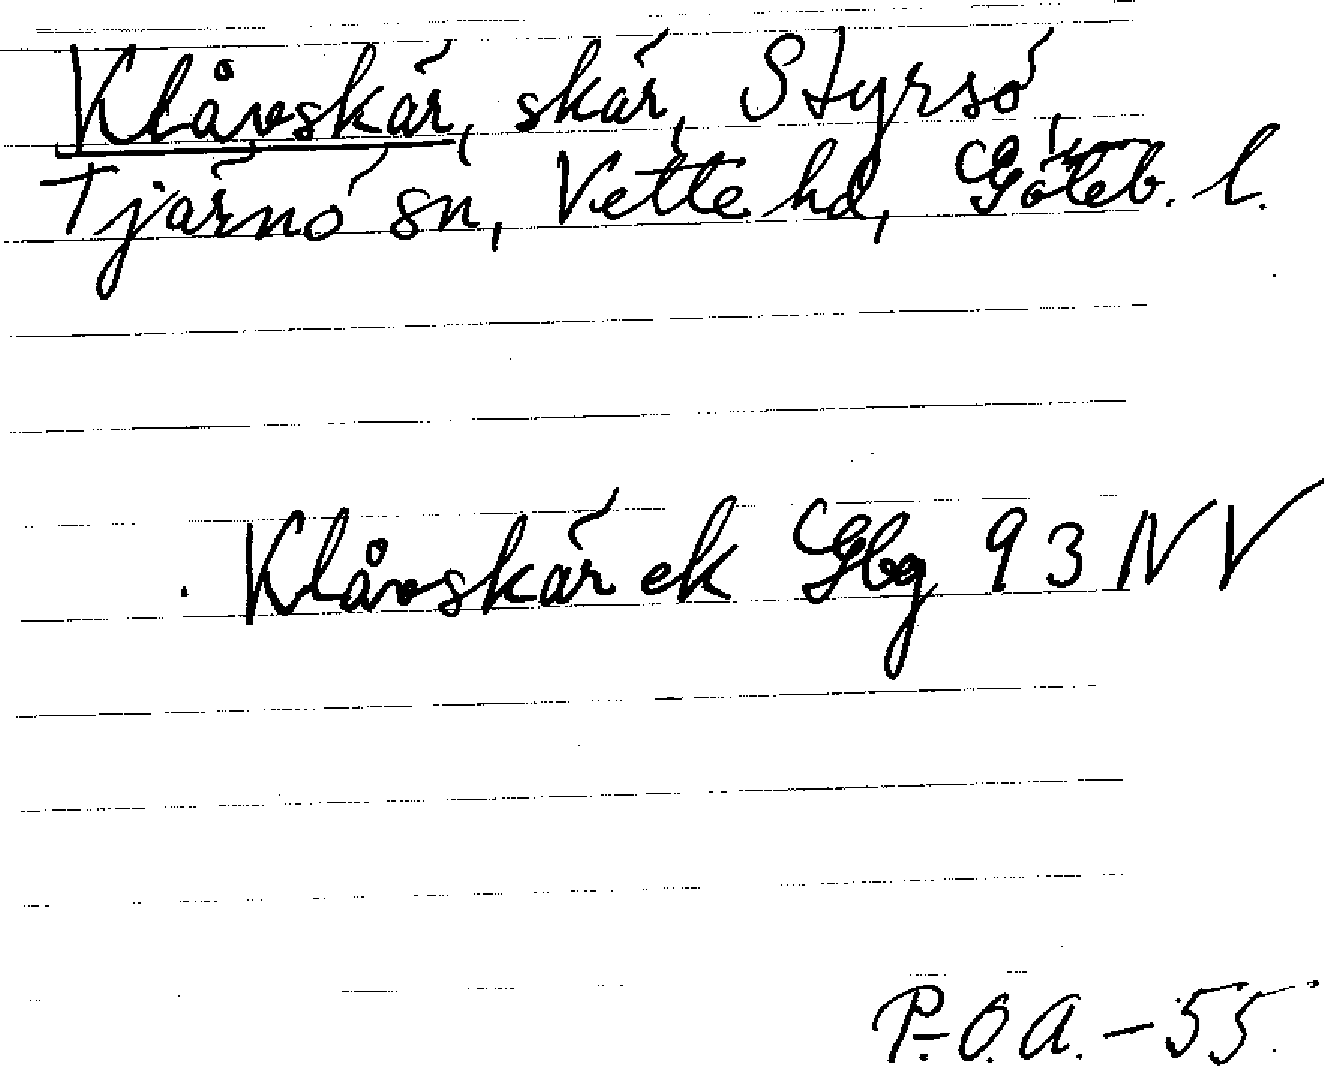 Klåvskär, skär, Styrsö,
Tjärnö sn, Vette hd, Göteb. l.
Klåvskär ek Gbg 93 NV
P.O.A. - 55.